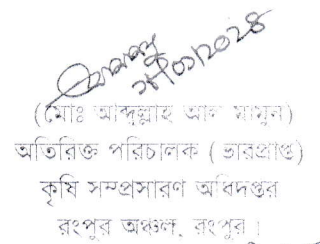 ২৮/০১/২০২৪
(মোঃ আব্দুল্লাহ আল মামুন)
অতিরিক্ত পরিচালক ( ভারপ্রাপ্ত)
কৃষি সম্প্রসারণ অধিদপ্তর
রংপুর অঞ্চল, রংপুর ।